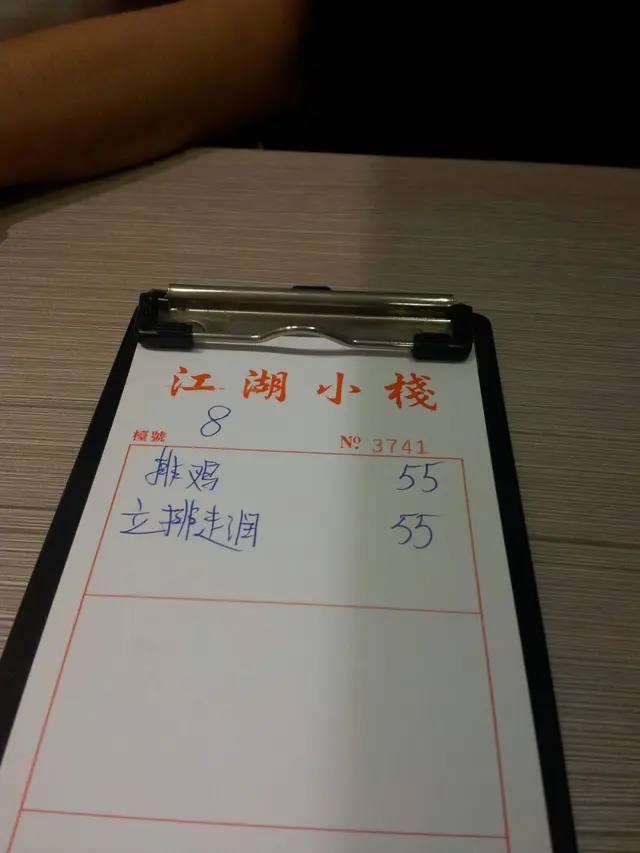 江湖小棧
檯號 8 Nº 3741
排鸡 55
立排走润 55